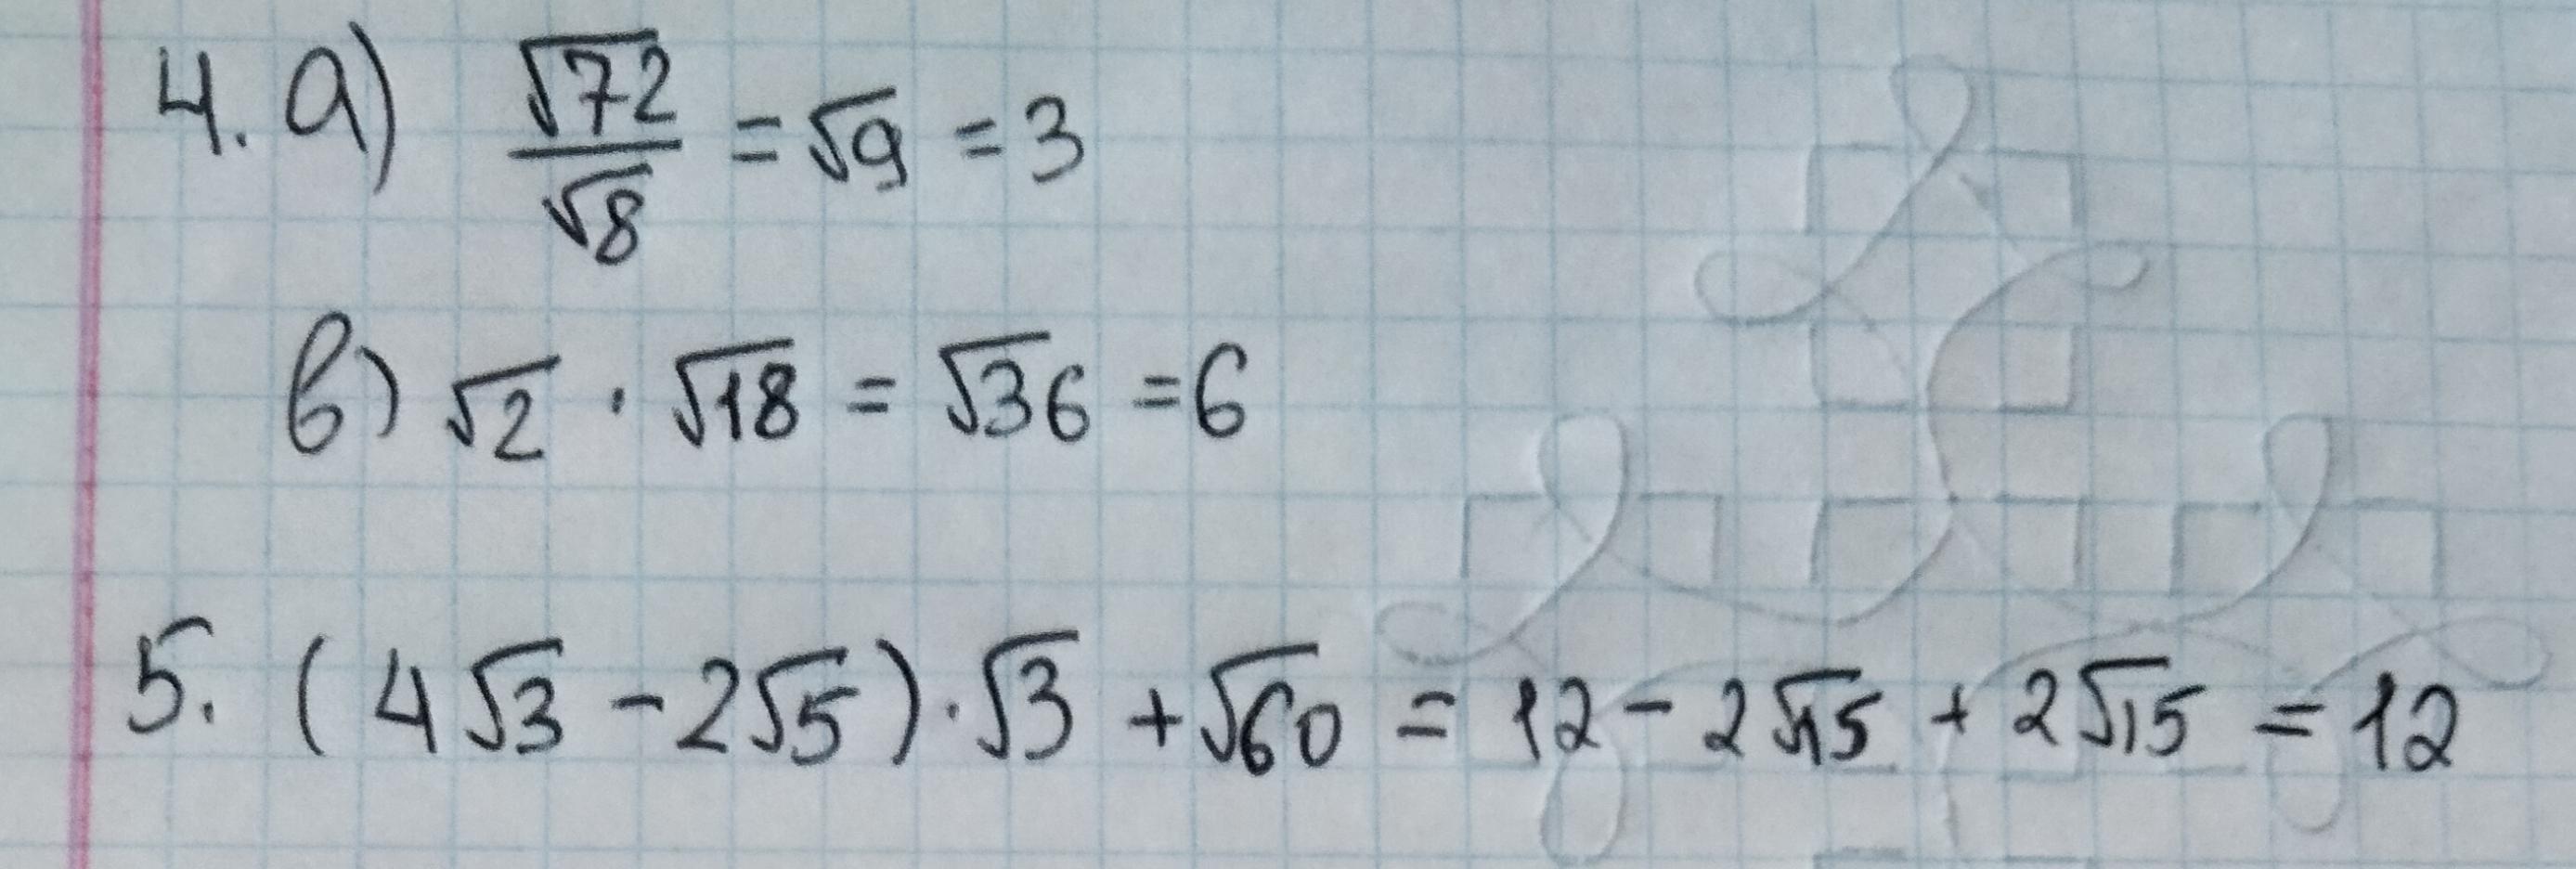 4. а) √72/√8 = √9 = 3
в) √2 · √18 = √36 = 6
5. (4√3 − 2√5) · √3 + √60 = 12 − 2√15 + 2√15 = 12